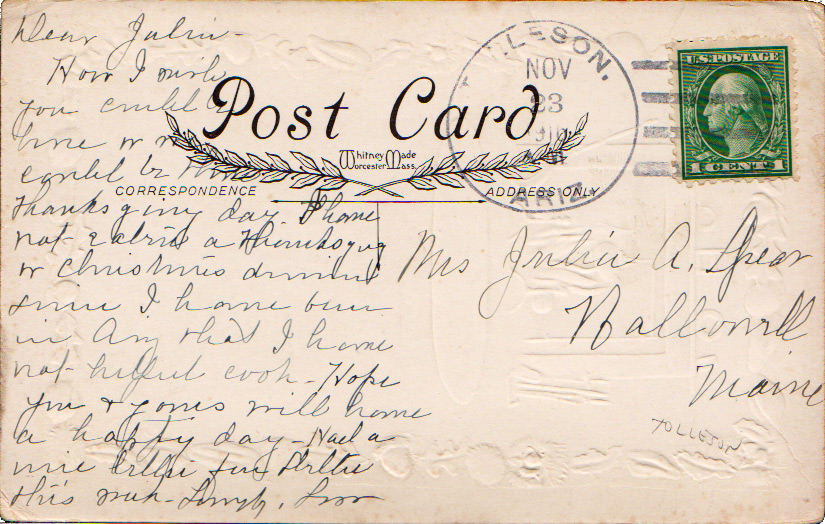 Dear Julia -
How I wish
you could b
here or
could be home
Thanksgiving day. I have
not eaten a Thanksgiving
or Christmas dinner
since I have been
in Ariz that I have
not helped cook - Hope
you & yours will have
a happy day - Had a
nice letter from
this week - Lovingly,
Post Card
Whitney Made
Worcester Mass.
CORRESPONDENCE
ADDRESS ONLY
LLESON.
NOV
23
ARIZ.
U.S. POSTAGE
1 CENT 1
Mrs Julia A. Spear
Hallowell
Maine
TOLLETON